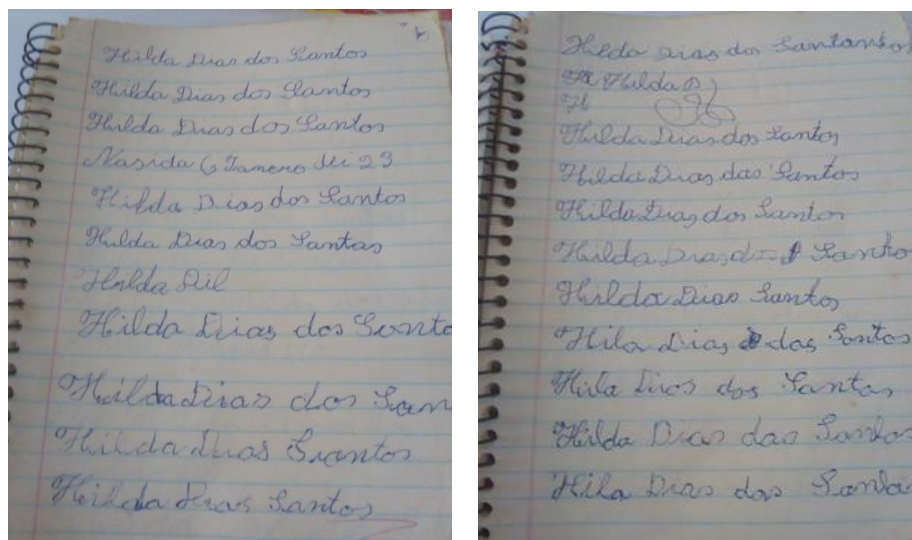 Hilda Dias dos Santos
Hilda Dias dos Santos
Hilda Dias dos Santos
Nasida 6 Janeno dei 23
Hilda Dias dos Santos
Hilda Dias dos Santas
Hilda Dil
Hilda Dias dos Santo
Hilda Dias dos San
Hilda Dias Santos
Hilda Dias Santos
Hilda Dias dos Santantos
Hilda D
H
Hilda Dias dos Santos
Hilda Dias das Santos
Hilda Dias dos Santos
Hilda Dias dos Santo
Hilda Dias Santos
Hila Dias das Santos
Hila Dias dos Santos
Hilda Dias das Santos
Hila Dias das Santa